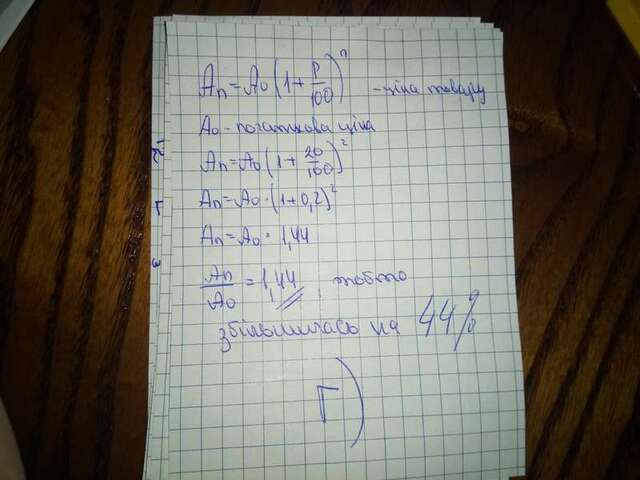 Aₙ = A₀(1 + p/100)ⁿ - ціна товару
A₀ - початкова ціна
Aₙ = A₀(1 + 20/100)²
Aₙ = A₀ · (1 + 0,2)²
Aₙ = A₀ · 1,44
Aₙ/A₀ = 1,44, тобто
збільшилась на 44%
Г)